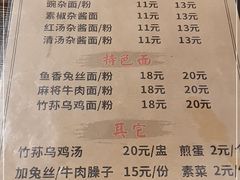 豌杂面/粉 11元 13元
素椒杂酱面/粉 11元 13元
红汤杂酱面/粉 11元 13元
清汤杂酱面/粉 11元 13元
特色面
鱼香兔丝面/粉 18元 20元
麻将牛肉面/粉 18元 20元
竹荪乌鸡面/粉 18元 20元
其它
竹荪乌鸡汤 20元/盅 煎蛋 2元/个
加兔丝/牛肉臊子 15元/份 素菜 2元/